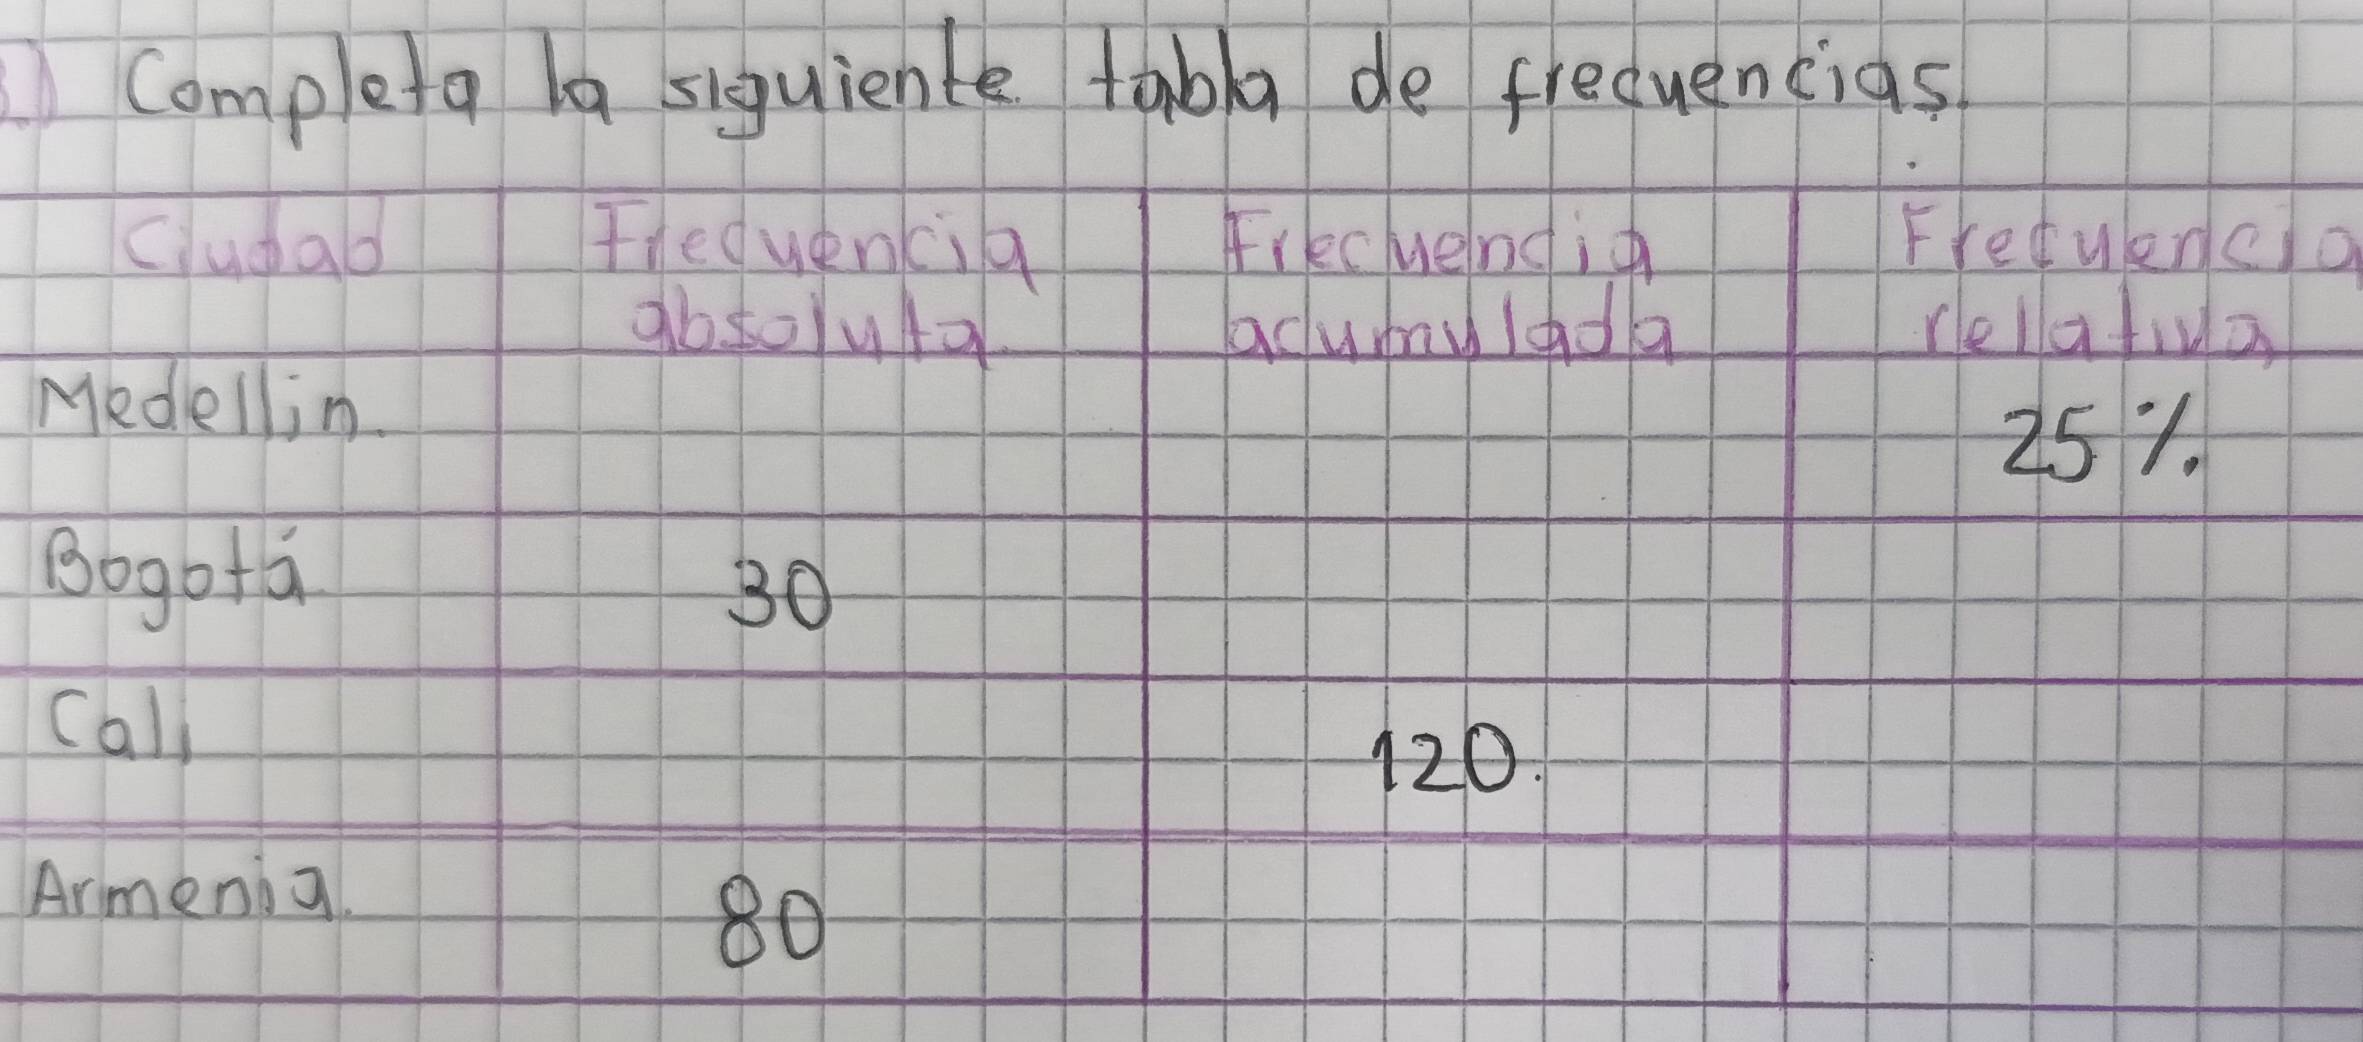 3.) Completa la siguiente tabla de frecuencias.
Ciudad Frecuencia absoluta Frecuencia acumulada Frecuencia relativa
Medellin. 25%.
Bogotá 30
Cali 120.
Armenia. 80